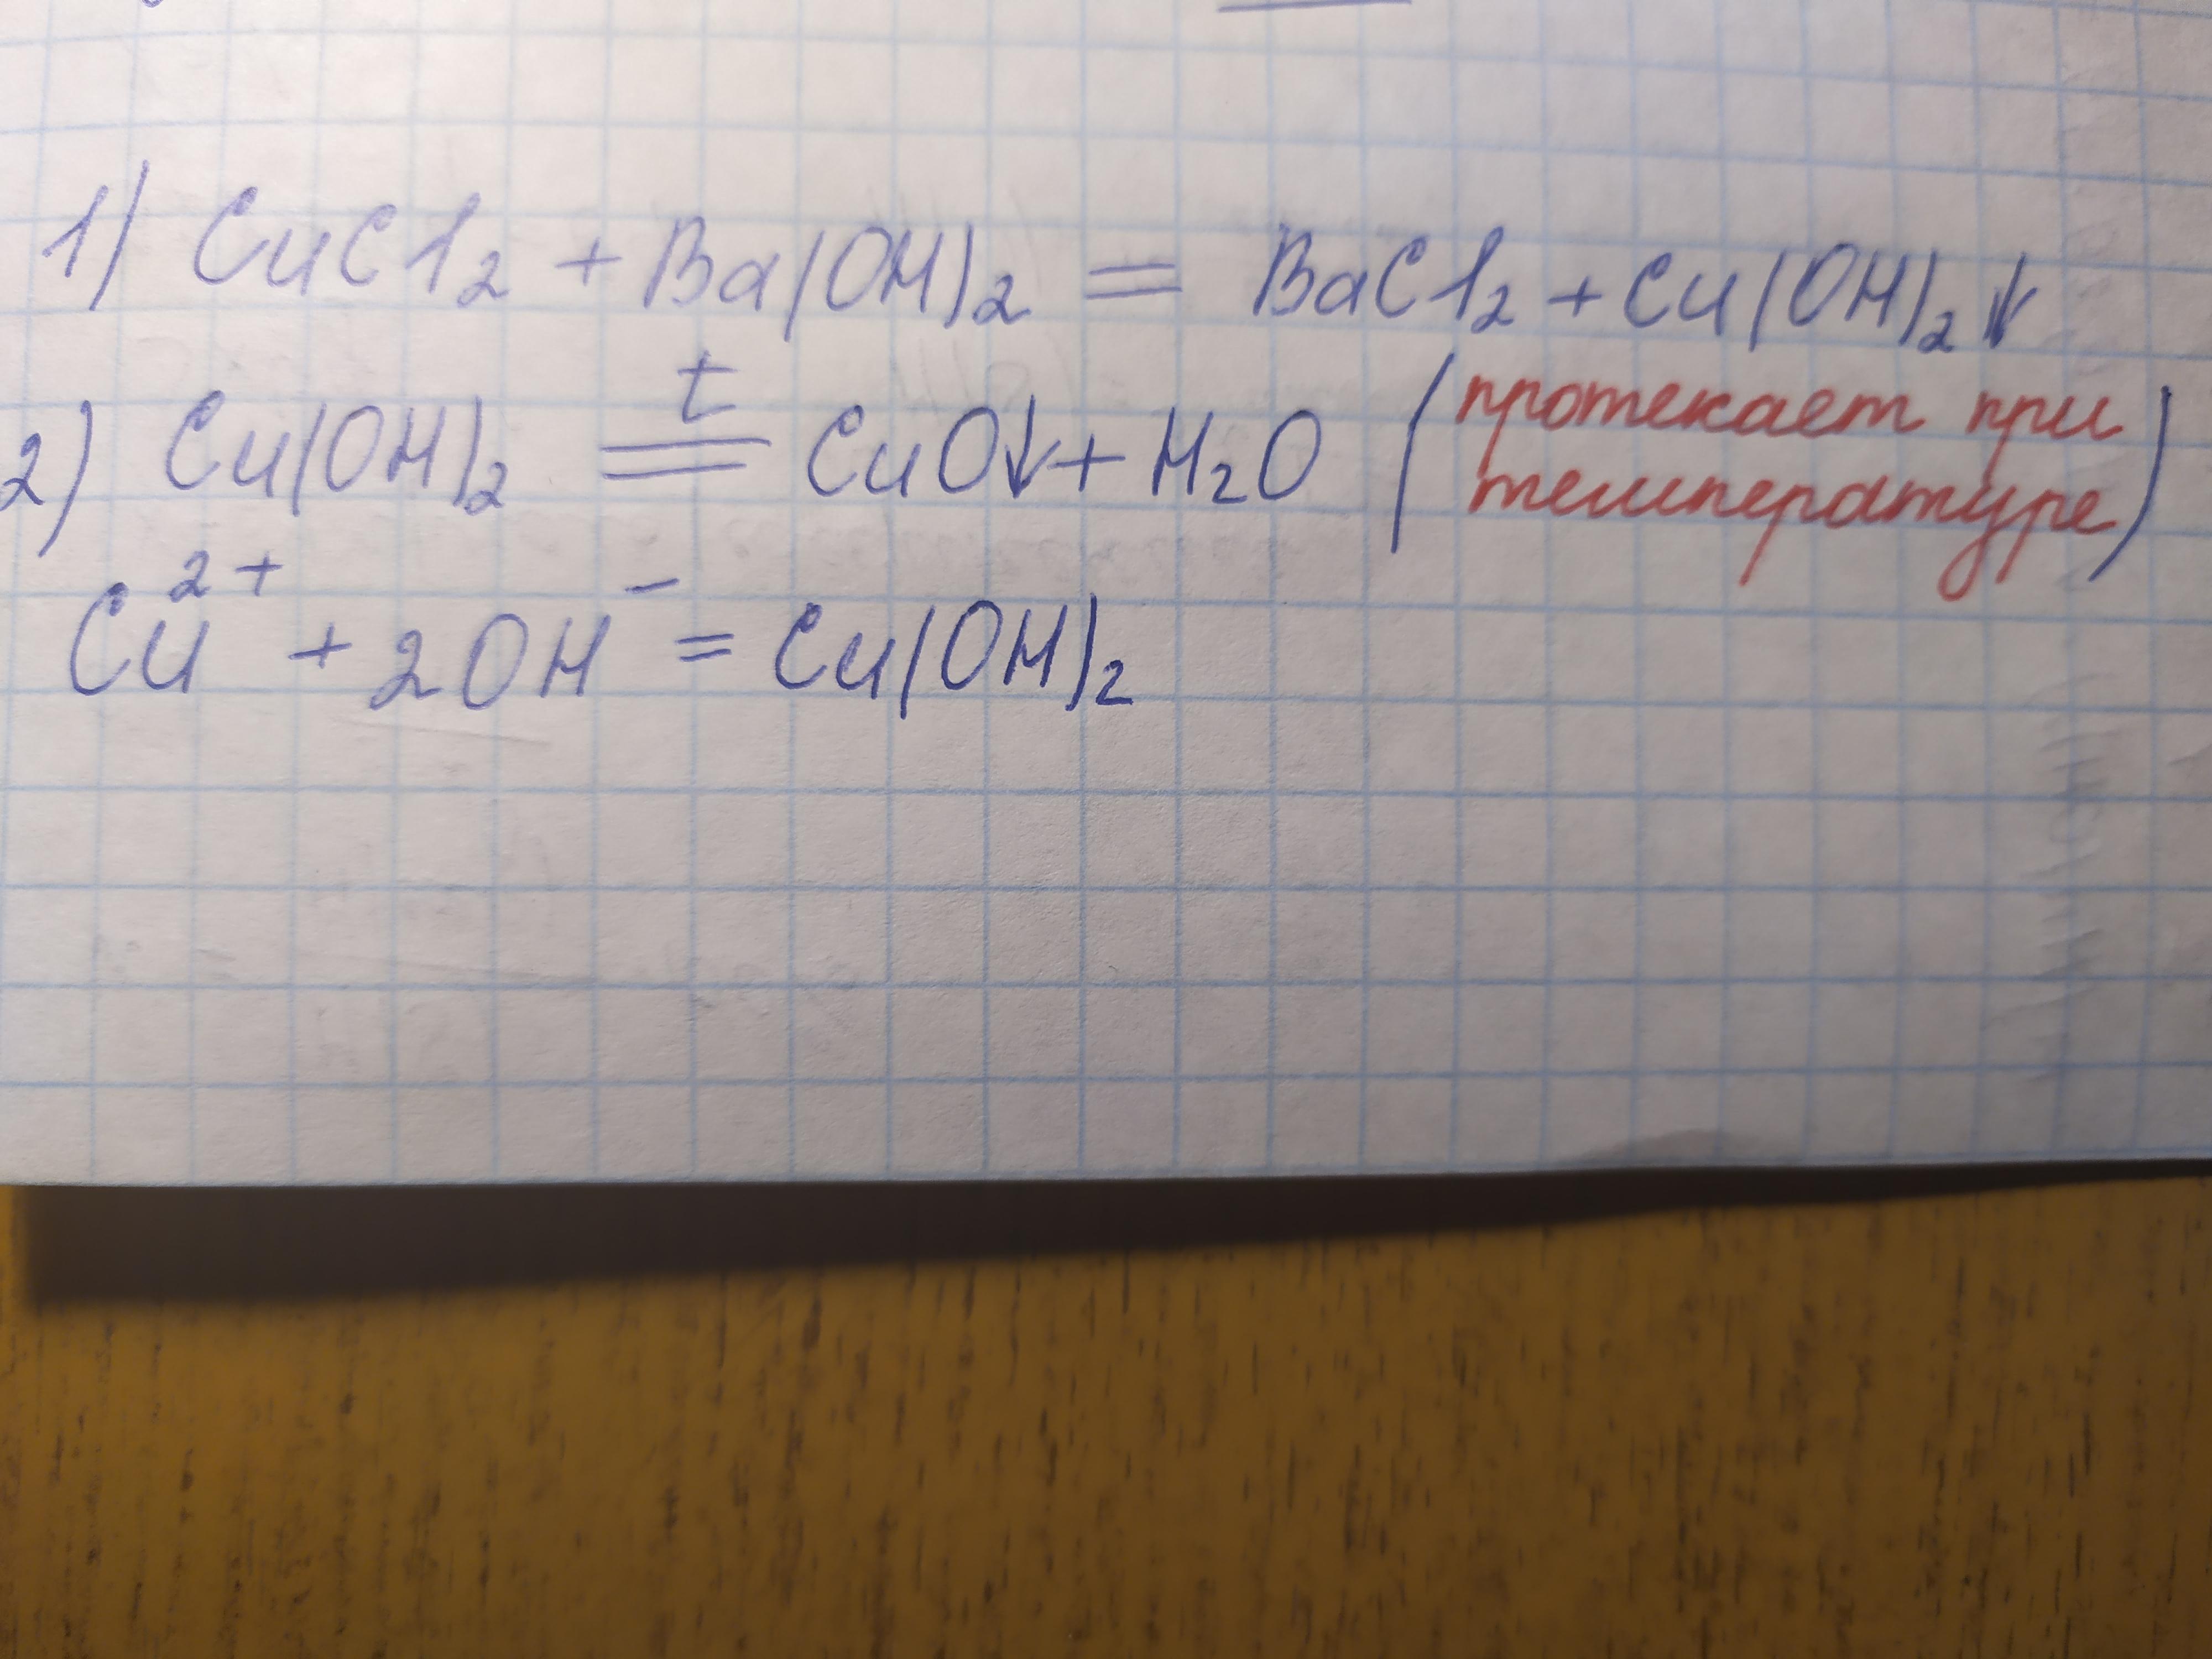 1) CuCl₂ + Ba(OH)₂ = BaCl₂ + Cu(OH)₂↓
t
2) Cu(OH)₂ = CuO↓ + H₂O (протекает при
температуре)
Cu²⁺ + 2OH⁻ = Cu(OH)₂